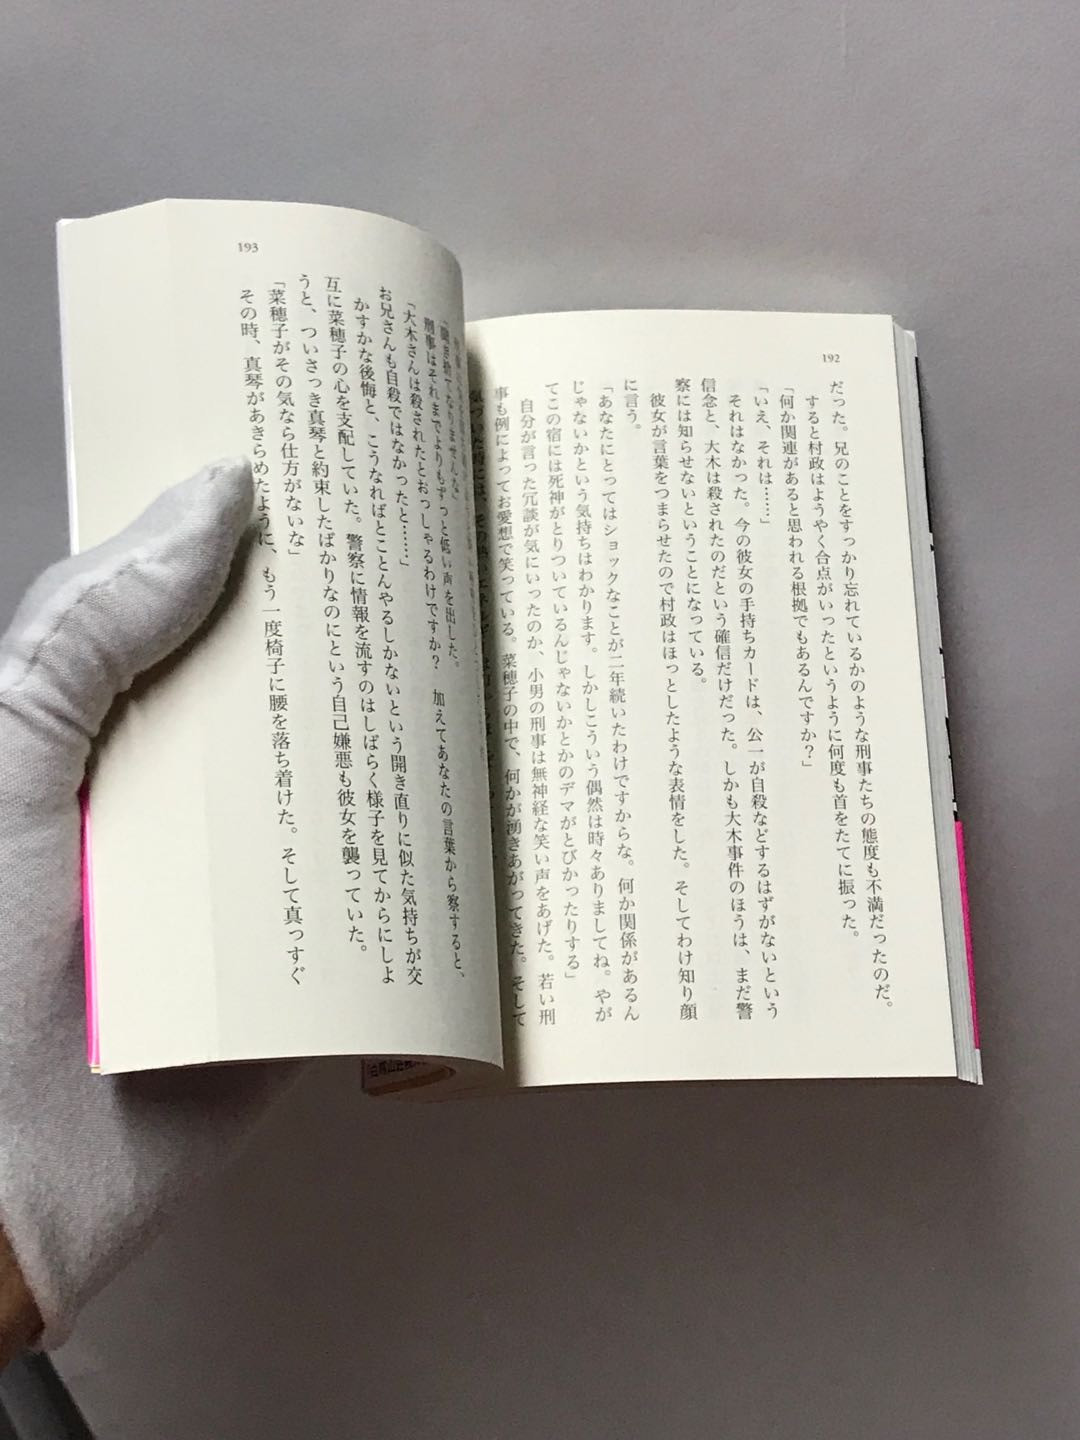 192
だった。兄のことをすっかり忘れているかのような刑事たちの態度も不満だったのだ。
すると村政はようやく合点がいったというように何度も首をたてに振った。
「何か関連があると思われる根拠でもあるんですか？」
「いえ、それは……」
それはなかった。今の彼女の手持ちカードは、公一が自殺などするはずがないという
信念と、大木は殺されたのだという確信だけだった。しかも大木事件のほうは、まだ警
察には知らせないということになっている。
彼女が言葉をつまらせたので村政はほっとしたような表情をした。そしてわけ知り顔
に言う。
「あなたにとってはショックなことが二年続いたわけですからな。何か関係があるん
じゃないかという気持ちはわかります。しかしこういう偶然は時々ありましてね。やが
てこの宿には死神がとりついているんじゃないかとかのデマがとびかったりする」
自分が言った冗談が気にいったのか、小男の刑事は無神経な笑い声をあげた。若い刑
事も例によってお愛想で笑っている。菜穂子の中で、何かが湧きあがってきた。そして
気づいた時には、その
193
「聞き捨てなりませんな」
刑事はそれまでよりもずっと低い声を出した。
「大木さんは殺されたとおっしゃるわけですか？　加えてあなたの言葉から察すると、
お兄さんも自殺ではなかったと……」
かすかな後悔と、こうなればとことんやるしかないという開き直りに似た気持ちが交
互に菜穂子の心を支配していた。警察に情報を流すのはしばらく様子を見てからにしよ
うと、ついさっき真琴と約束したばかりなのにという自己嫌悪も彼女を襲っていた。
「菜穂子がその気なら仕方がないな」
その時、真琴があきらめたように、もう一度椅子に腰を落ち着けた。そして真っすぐ